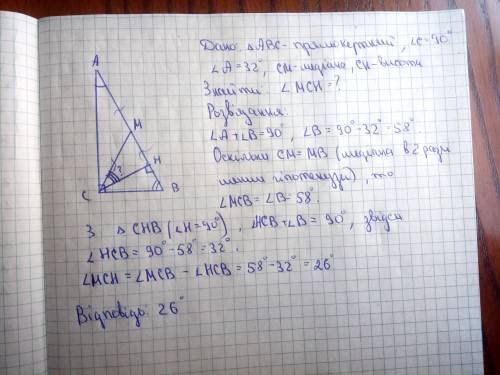 Дано: △ABC - прямокутний, ∠C=90°
∠A=32°, CM-медіана, CH-висота
Знайти: ∠MCH=?
Розв'язання:
∠A+∠B=90°, ∠B=90°-32°=58°
Оскільки CM=MB (медіана в 2 рази
менша гіпотенузи), то
∠MCB=∠B=58°.
З △CHB (∠H=90°), ∠HCB+∠B=90°, звідси
∠HCB=90°-58°=32°.
∠MCH=∠MCB-∠HCB=58°-32°=26°
Відповідь: 26°
A
M
H
?
C
B